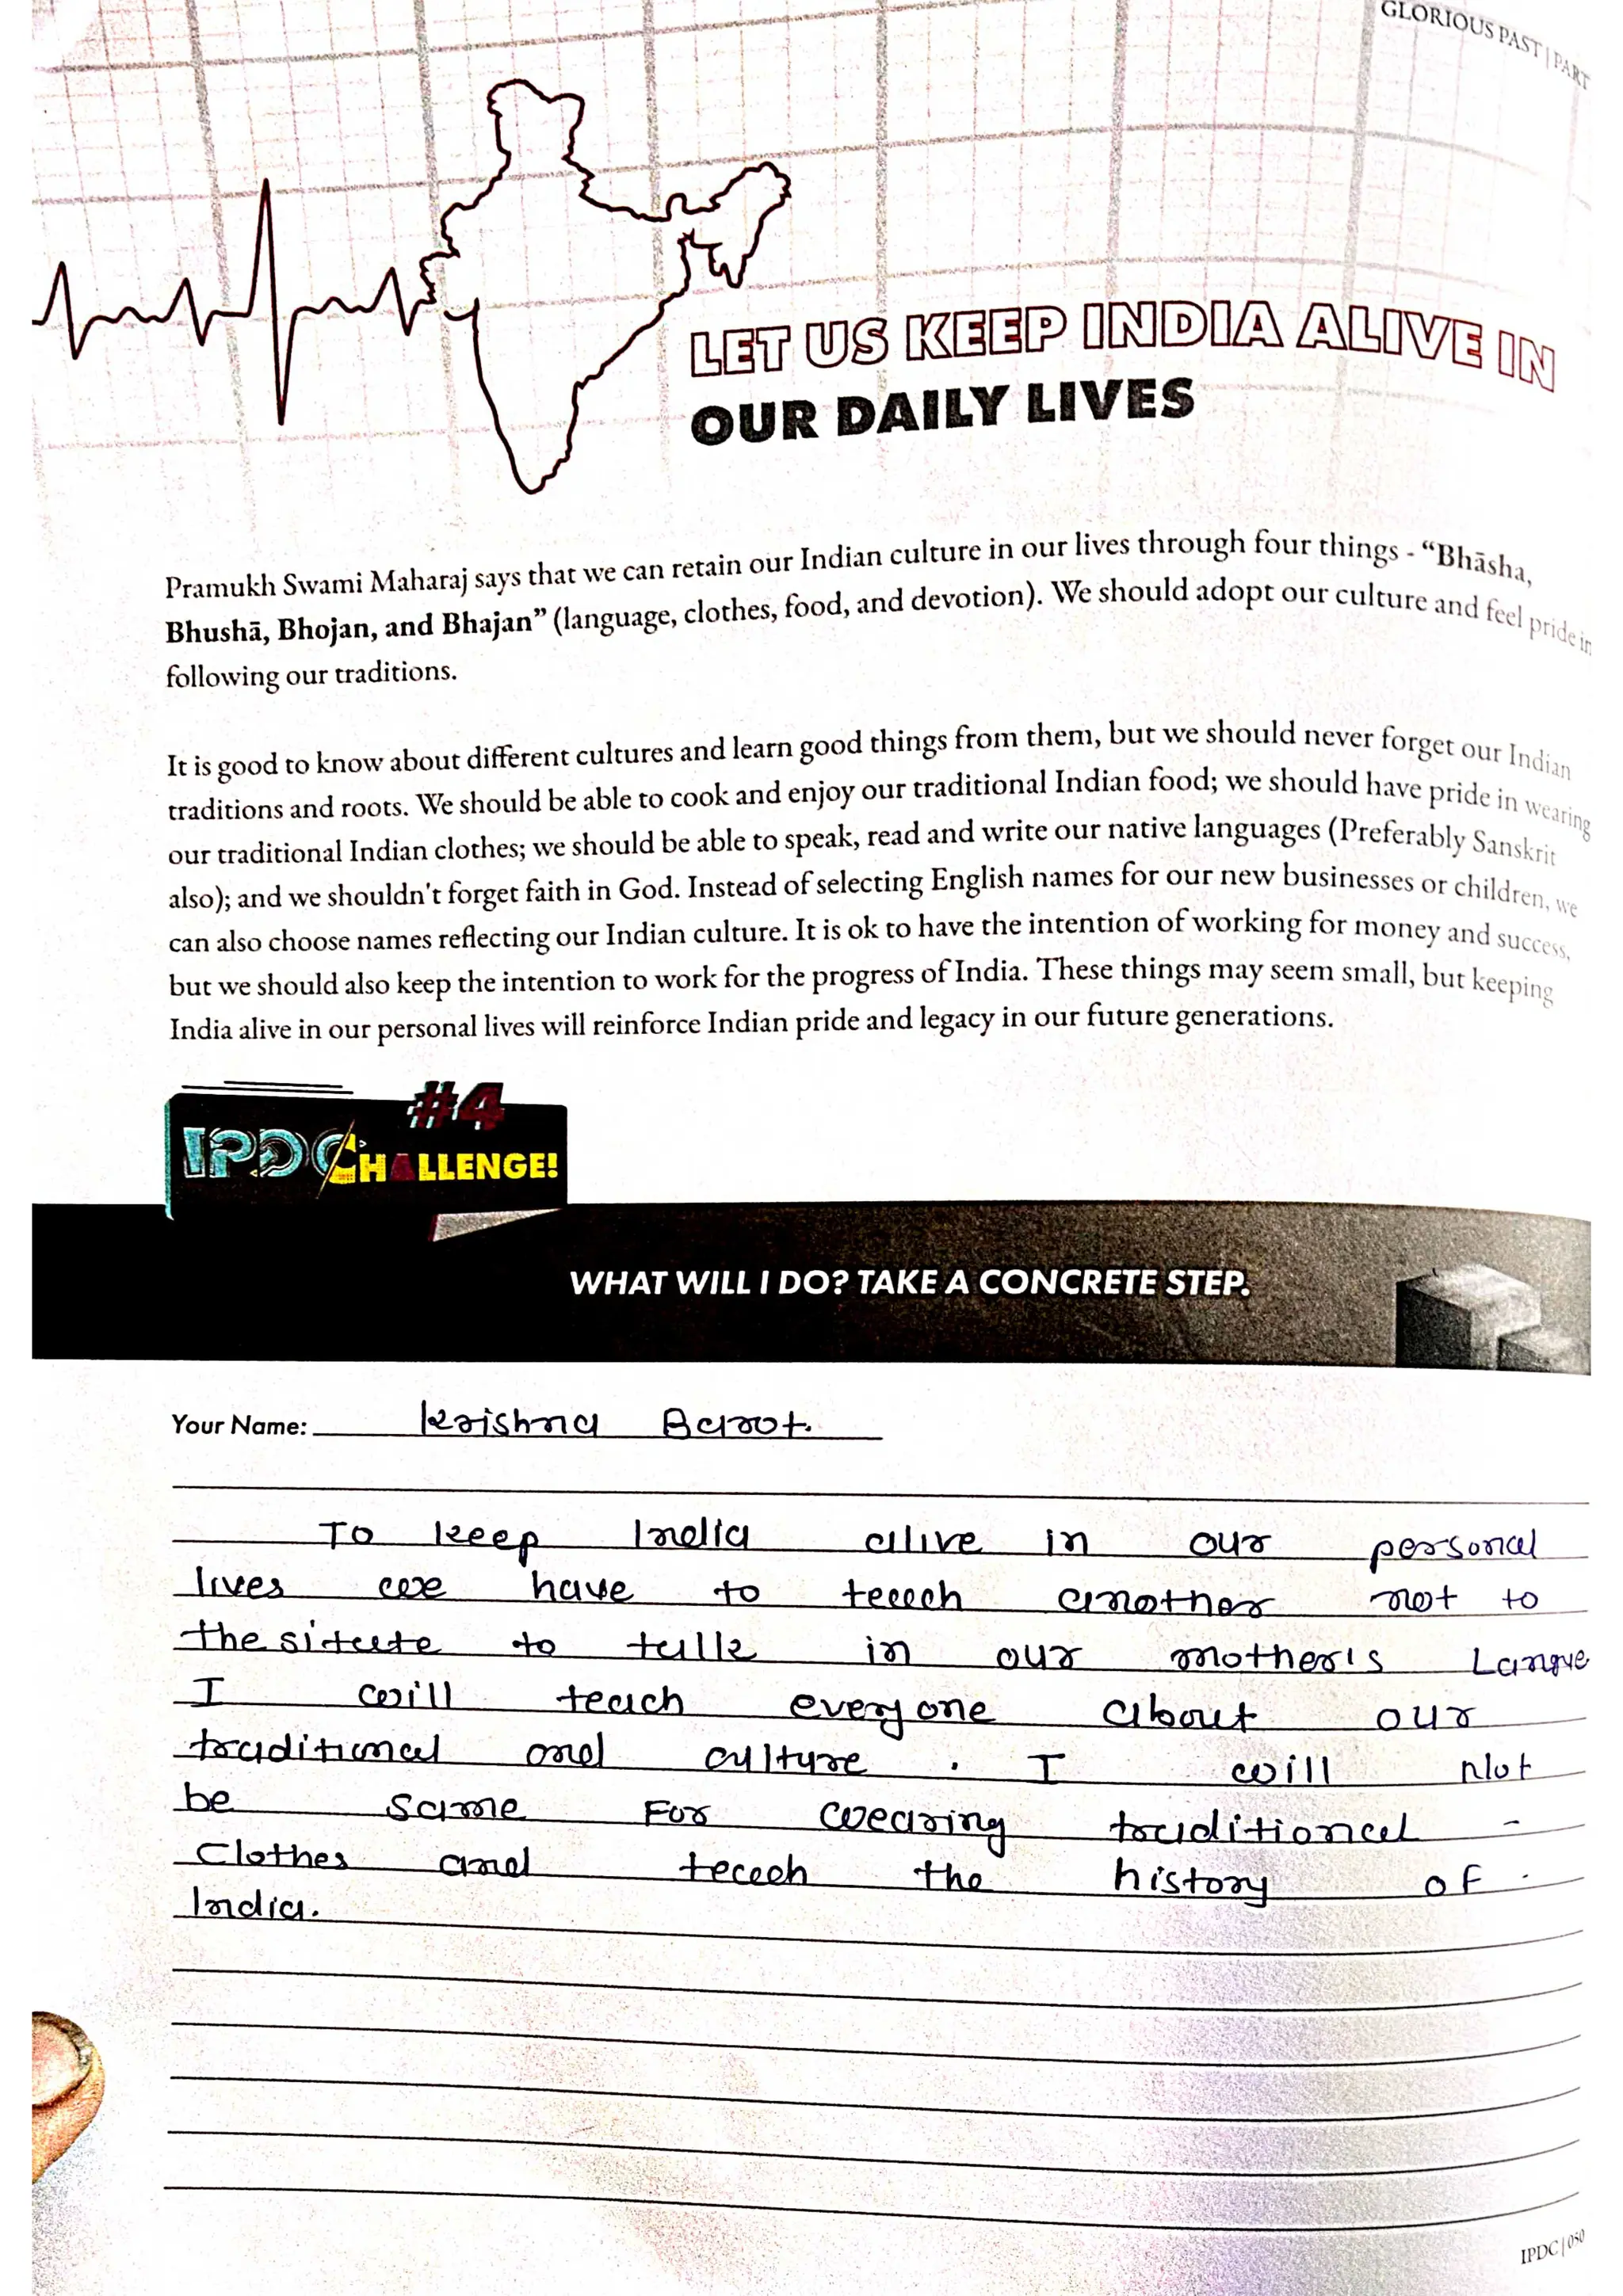 GLORIOUS PAST | PART
LET US KEEP INDIA ALIVE IN
OUR DAILY LIVES
Pramukh Swami Maharaj says that we can retain our Indian culture in our lives through four things - “Bhāsha,
Bhushā, Bhojan, and Bhajan” (language, clothes, food, and devotion). We should adopt our culture and feel pride in
following our traditions.
It is good to know about different cultures and learn good things from them, but we should never forget our Indian
traditions and roots. We should be able to cook and enjoy our traditional Indian food; we should have pride in wearing
our traditional Indian clothes; we should be able to speak, read and write our native languages (Preferably Sanskrit
also); and we shouldn't forget faith in God. Instead of selecting English names for our new businesses or children, we
can also choose names reflecting our Indian culture. It is ok to have the intention of working for money and success,
but we should also keep the intention to work for the progress of India. These things may seem small, but keeping
India alive in our personal lives will reinforce Indian pride and legacy in our future generations.
#4
IPDC CHALLENGE!
WHAT WILL I DO? TAKE A CONCRETE STEP.
Your Name: Krishna Barot.
To keep India alive in our personal
lives we have to teach another not to
the situte to talk in our mother's Langue
I will teach everyone about our
traditional and culture. I will Not
be same For wearing traditional -
Clothes and teach the history of
India.
IPDC | 050